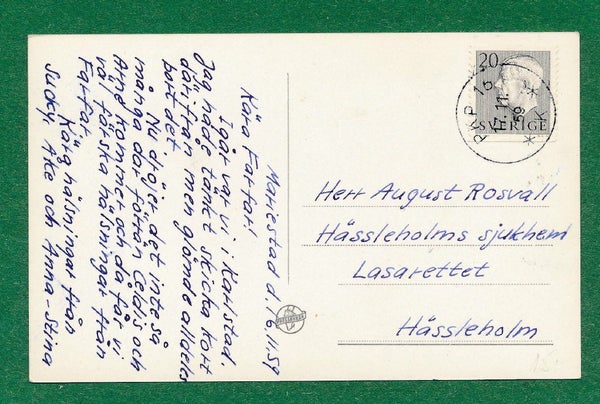 Mariestad d. 16.11.59
Kära Farfar!
Igår var vi i Karlstad.
Jag hade tänkt skicka kort
därifrån men glömde alldeles
bort det.
Nu dröjer det inte så
många dar förrän Celais och
Arne kommer och då får vi
väl färska hälsningar från
Farfar.
Kära hälsningar från
Sucky, Åke och Anna-Stina
20
SVERIGE
PKP 16
17.11.
59
K
Herr August Rosvall
Hässleholms sjukhem
Lasarettet
Hässleholm